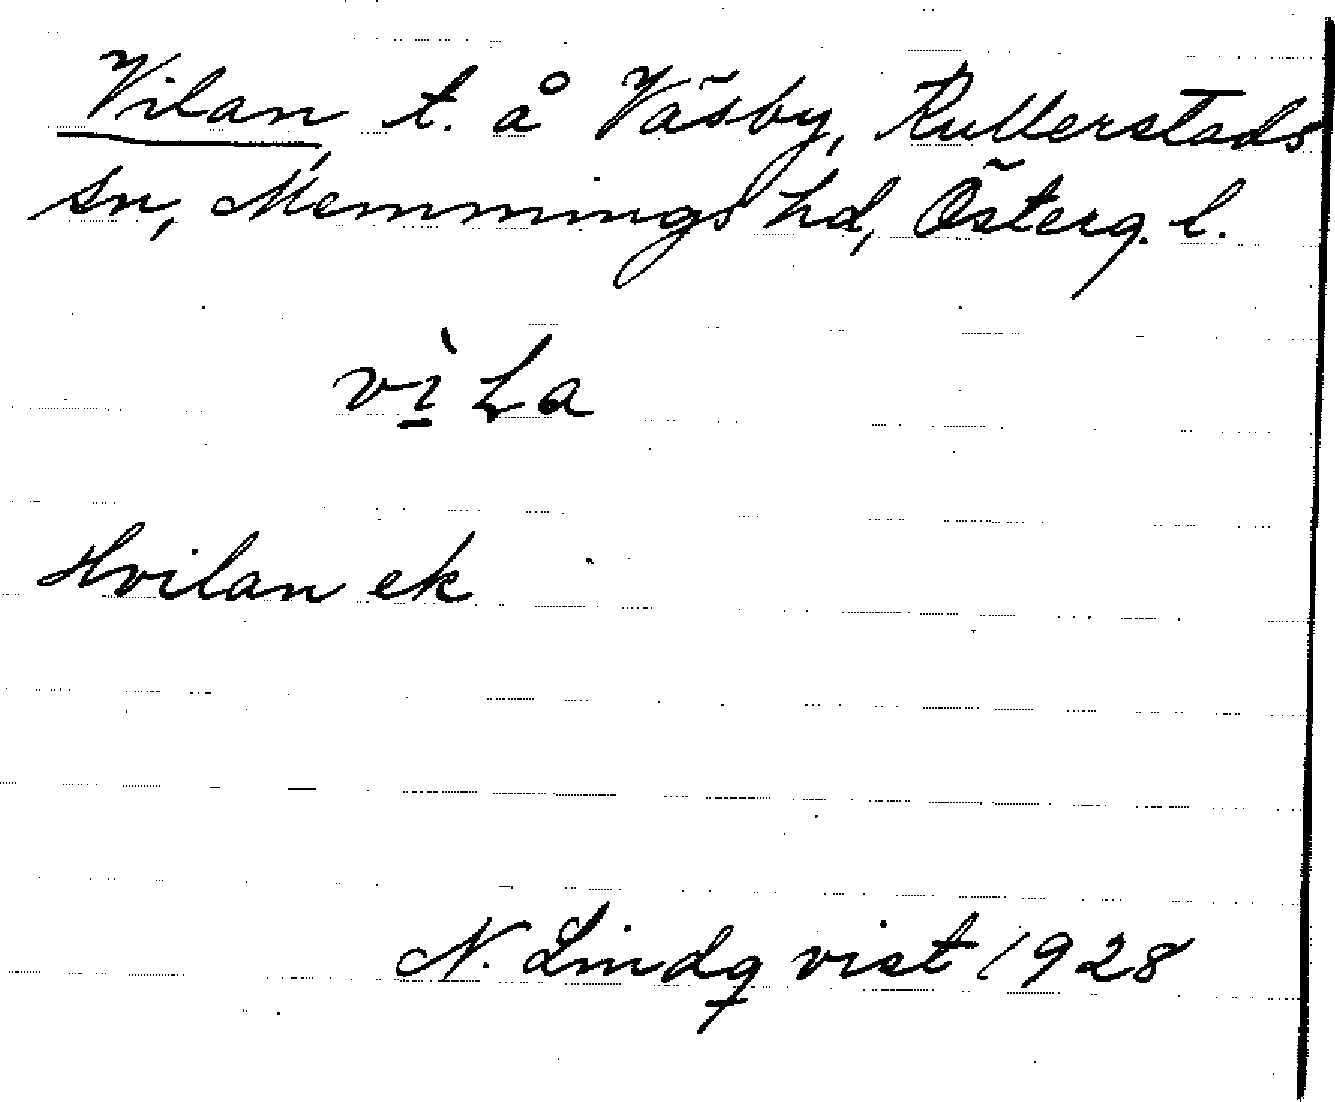 Vilan t. å Väsby, Kullerstads
sn, Memmings hd, Österg. l.
vìLa
Hvilan ek
N. Lindqvist 1928